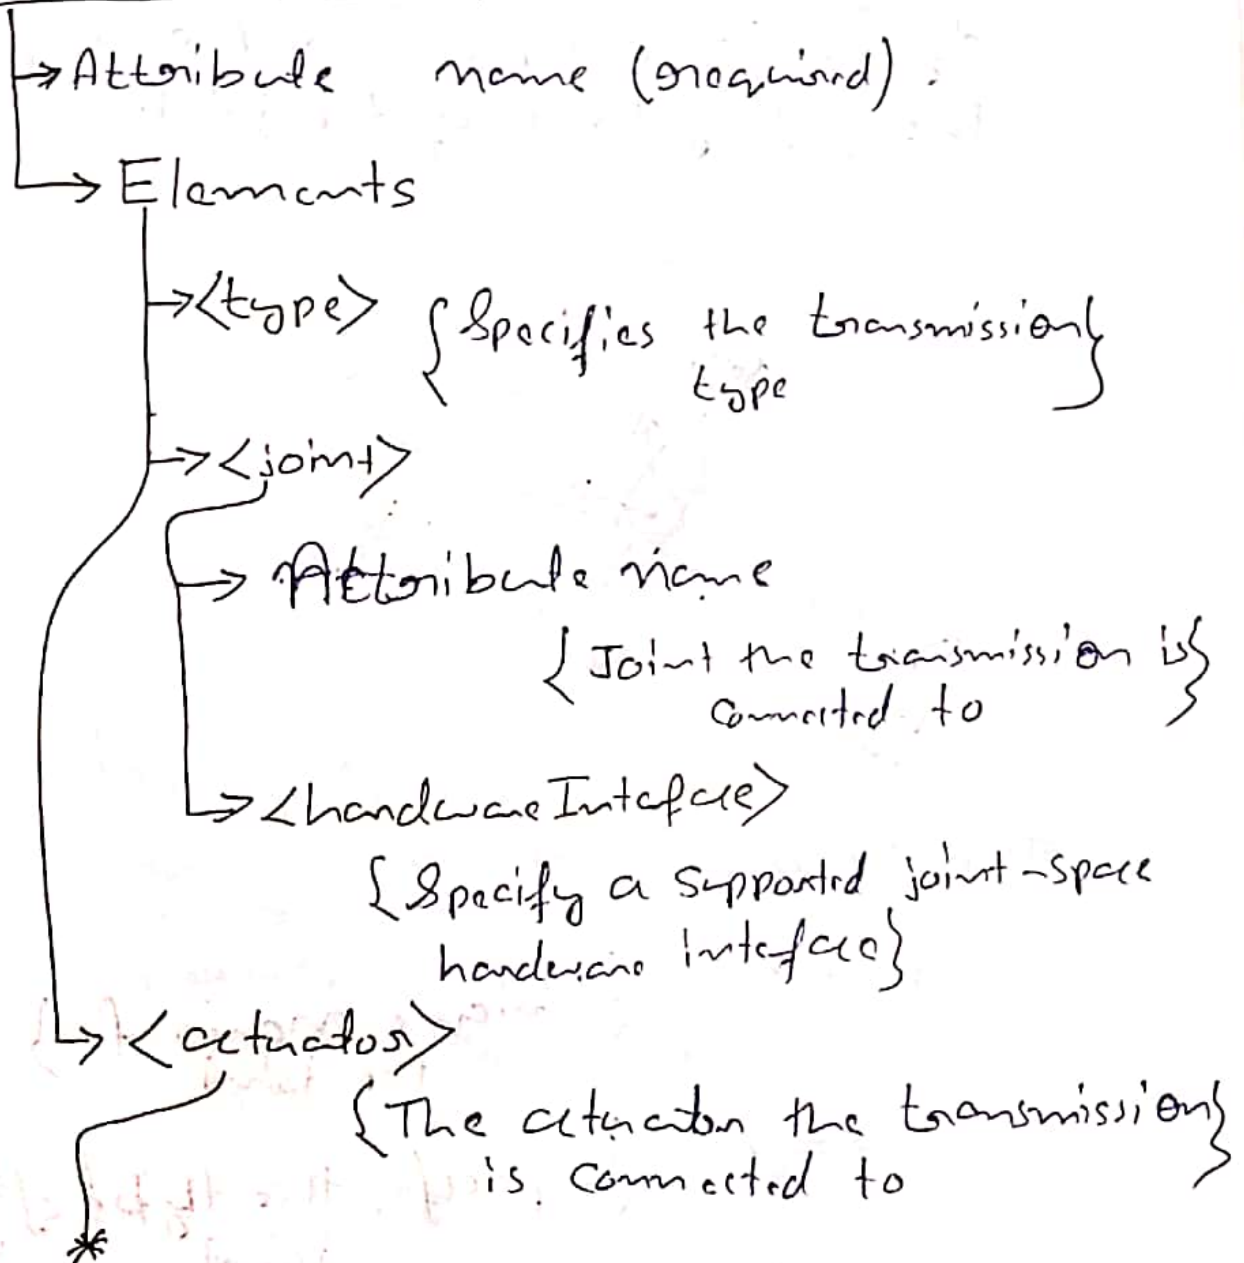 → Attribute name (required).
→ Elements
→ <type> {Specifies the transmission}
type
→ <joint>
→ Attribute name
{Joint the transmission is}
connected to
→ <hardwareInteface>
{Specify a supported joint-space
hardware inteface}
→ <actuator>
{The actuator the transmission}
is connected to
*